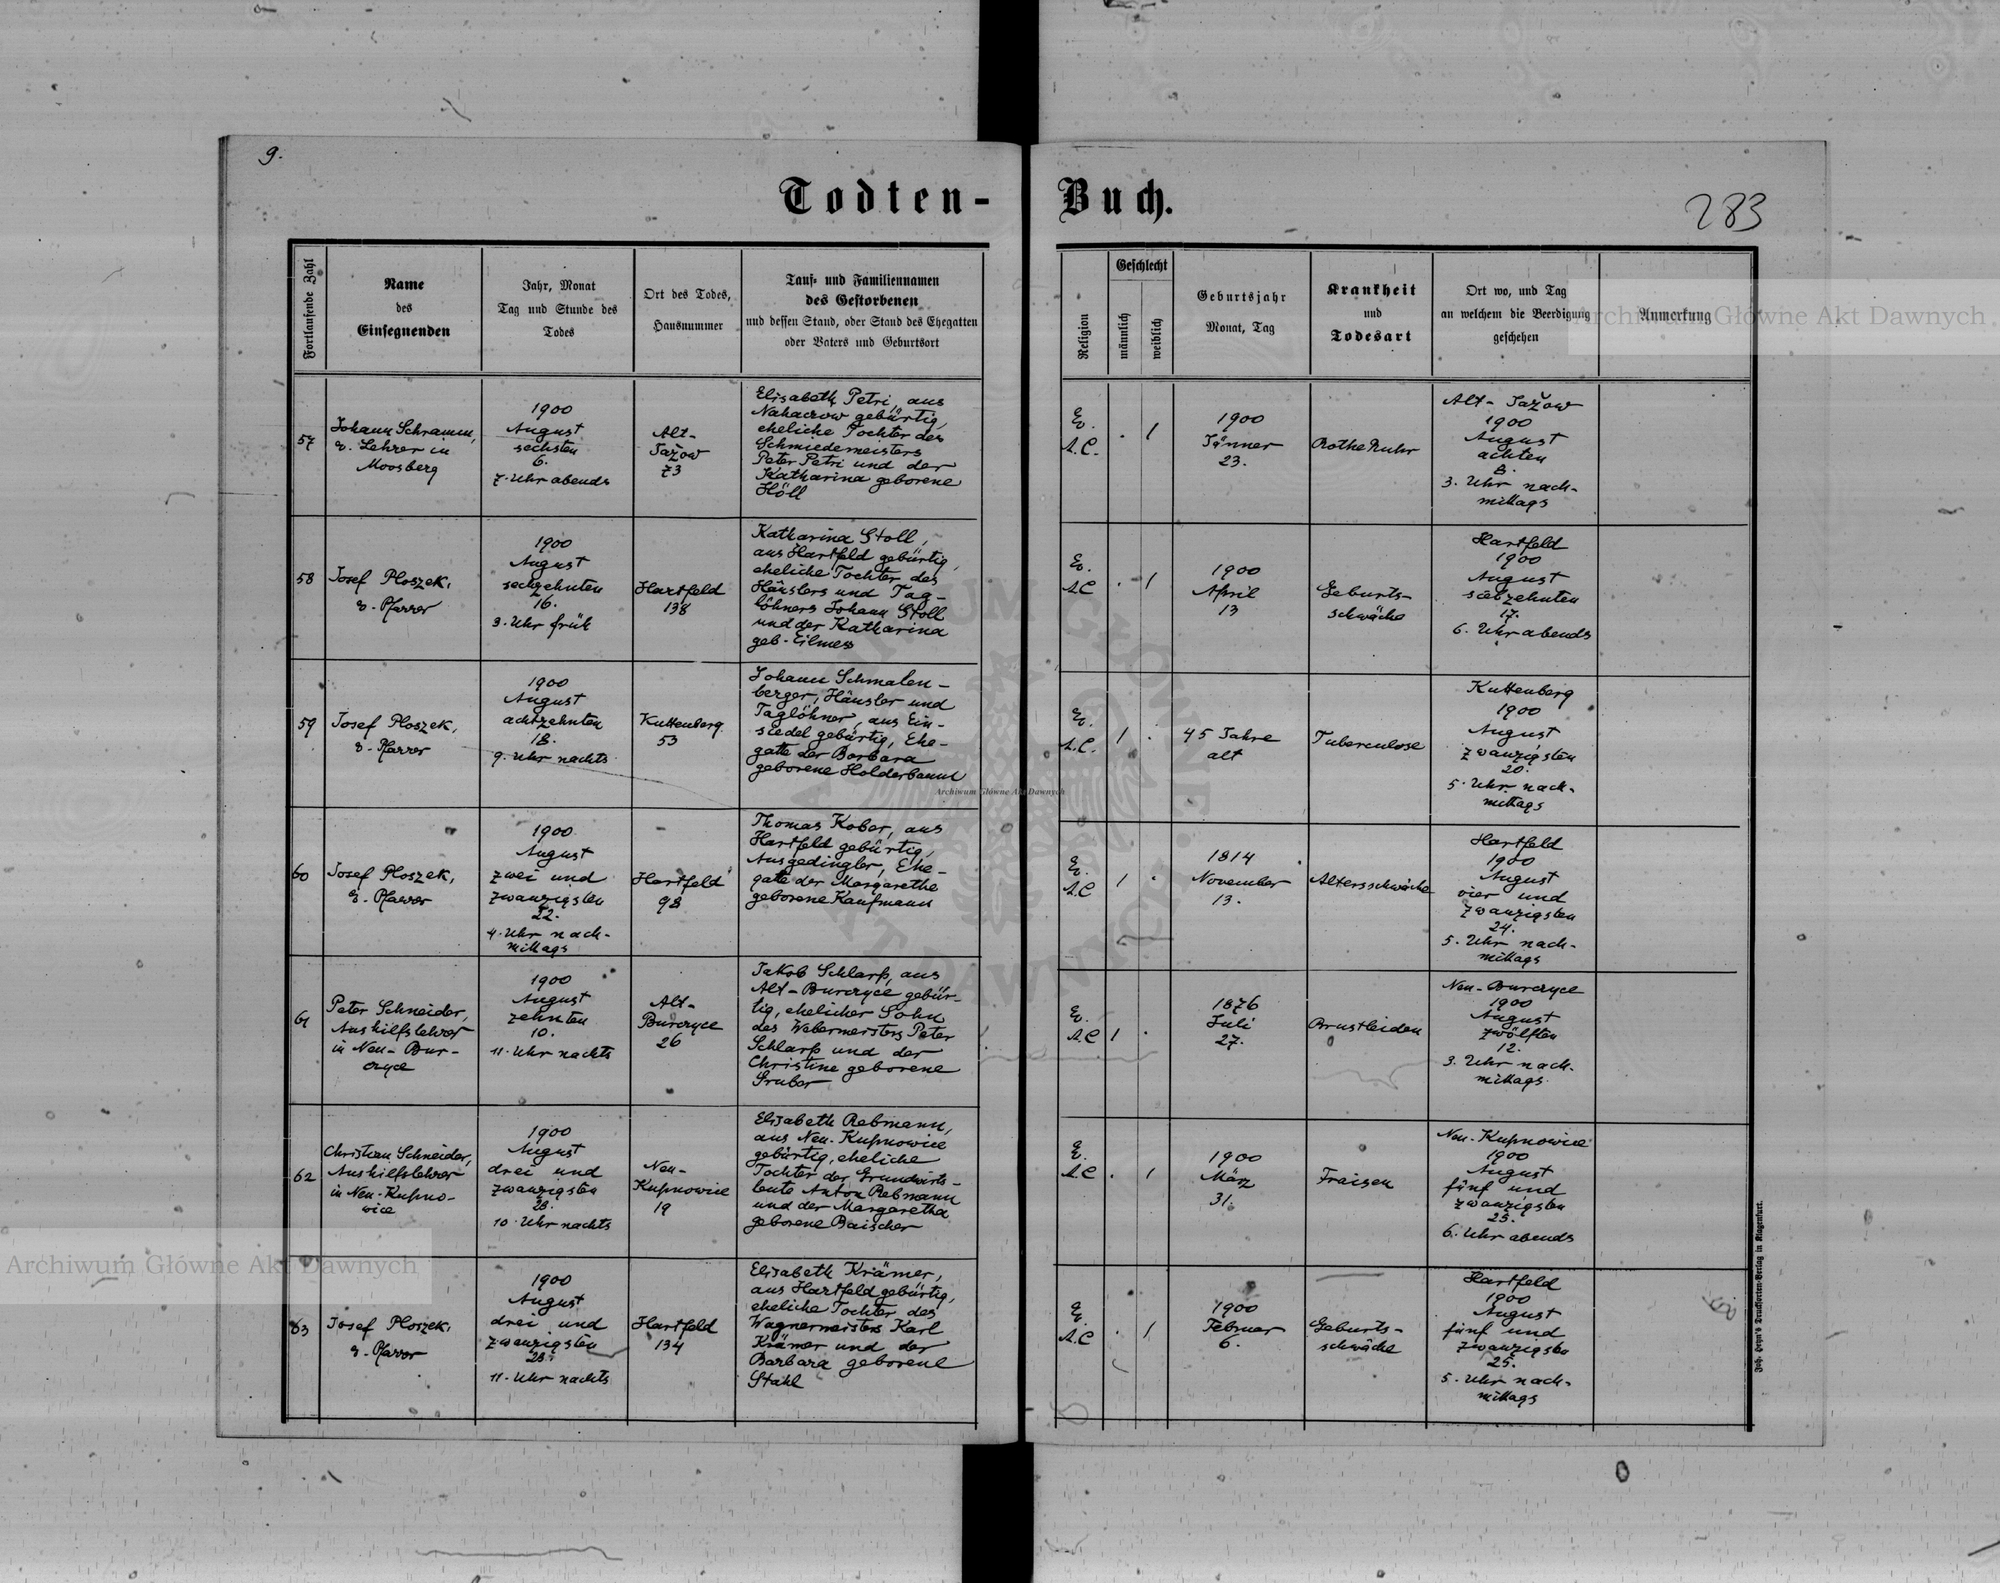 9.
Todten-Buch.
283
Fortlaufende Zahl
Name
des
Einsegnenden
Jahr, Monat
Tag und Stunde des
Todes
Ort des Todes,
Hausnummer
Tauf- und Familiennamen
des Gestorbenen
und dessen Stand, oder Stand des Ehegatten
oder Vaters und Geburtsort
Religion
Geschlecht
männlich
weiblich
Geburtsjahr
Monat, Tag
Krankheit
und
Todesart
Ort wo, und Tag
an welchem die Beerdigung
geschehen
Anmerkung
57
Johann Schramm,
e. Lehrer in
Moosberg
1900
August
sechsten
6.
7. Uhr abends
Alt-
Jažow
73
Elisabeth Petri, aus
Nahaczow gebürtig,
eheliche Tochter des
Schmiedemeisters
Peter Petri und der
Katharina geborene
Höll
Ev.
A.C.
. 1
1900
Jänner
23.
Rothe Ruhr
Alt-Jažow
1900
August
achten
8.
3. Uhr nach-
mittags
58
Josef Ploszek,
e. Pfarrer
1900
August
sechzehnten
16.
3. Uhr früh
Hartfeld
138
Katharina Stoll,
aus Hartfeld gebürtig,
eheliche Tochter des
Häuslers und Tag-
löhners Johann Stoll
und der Katharina
geb. Eilmess
Ev.
A.C
. 1
1900
April
13
Geburts-
schwäche
Hartfeld
1900
August
siebzehnten
17.
6. Uhr abends
59
Josef Ploszek,
e. Pfarrer
1900
August
achtzehnten
18.
9. Uhr nachts
Kuttenberg
53
Johann Schmalen-
berger, Häusler und
Taglöhner, aus Ein-
siedel gebürtig, Ehe-
gatte der Barbara
geborene Holderbaum
Ev.
A.C.
1 .
45 Jahre
alt
Tuberculose
Kuttenberg
1900
August
zwanzigsten
20.
5. Uhr nach-
mittags
60
Josef Ploszek,
e. Pfarrer
1900
August
zwei und
zwanzigsten
22.
4. Uhr nach-
mittags
Hartfeld
98
Thomas Kober, aus
Hartfeld gebürtig,
Ausgedingler, Ehe-
gatte der Margarethe
geborene Kaufmann
Ev.
A.C
1 .
1814
November
13.
Altersschwäche
Hartfeld
1900
August
vier und
zwanzigsten
24.
5. Uhr nach-
mittags
61
Peter Schneider,
Aushilfslehrer
in Neu-Bur-
czyce
1900
August
zehnten
10.
11. Uhr nachts
Alt-
Burczyce
26
Jakob Schlarp, aus
Alt-Burczyce gebür-
tig, ehelicher Sohn
des Webermeisters Peter
Schlarp und der
Christine geborene
Gruber
Ev.
A.C
1 .
1876
Juli
27.
Brustleiden
Neu-Burczyce
1900
August
zwölften
12.
3. Uhr nach-
mittags
62
Christian Schneider,
Aushilfslehrer
in Neu-Kupno-
wice
1900
August
drei und
zwanzigsten
23.
10. Uhr nachts
Neu-
Kupnowice
19
Elisabeth Rebmann,
aus Neu-Kupnowice
gebürtig, eheliche
Tochter der Grundwirts-
leute Anton Rebmann
und der Margaretha
geborene Baischer
E.
A.C
. 1
1900
März
31.
Fraisen
Neu-Kupnowice
1900
August
fünf und
zwanzigsten
25.
6. Uhr abends
63
Josef Ploszek,
e. Pfarrer
1900
August
drei und
zwanzigsten
23.
11. Uhr nachts
Hartfeld
134
Elisabeth Krämer,
aus Hartfeld gebürtig,
eheliche Tochter des
Wagnermeisters Karl
Krämer und der
Barbara geborene
Stahl
E.
A.C
. 1
1900
Februar
6.
Geburts-
schwäche
Hartfeld
1900
August
fünf und
zwanzigsten
25.
5. Uhr nach-
mittags
Joh. Heyn's Drucksorten-Verlag in Klagenfurt.
Archiwum Główne Akt Dawnych
Archiwum Główne Akt Dawnych
Archiwum Główne Akt Dawnych
ARCHIWUM GŁÓWNE AKT DAWNYCH